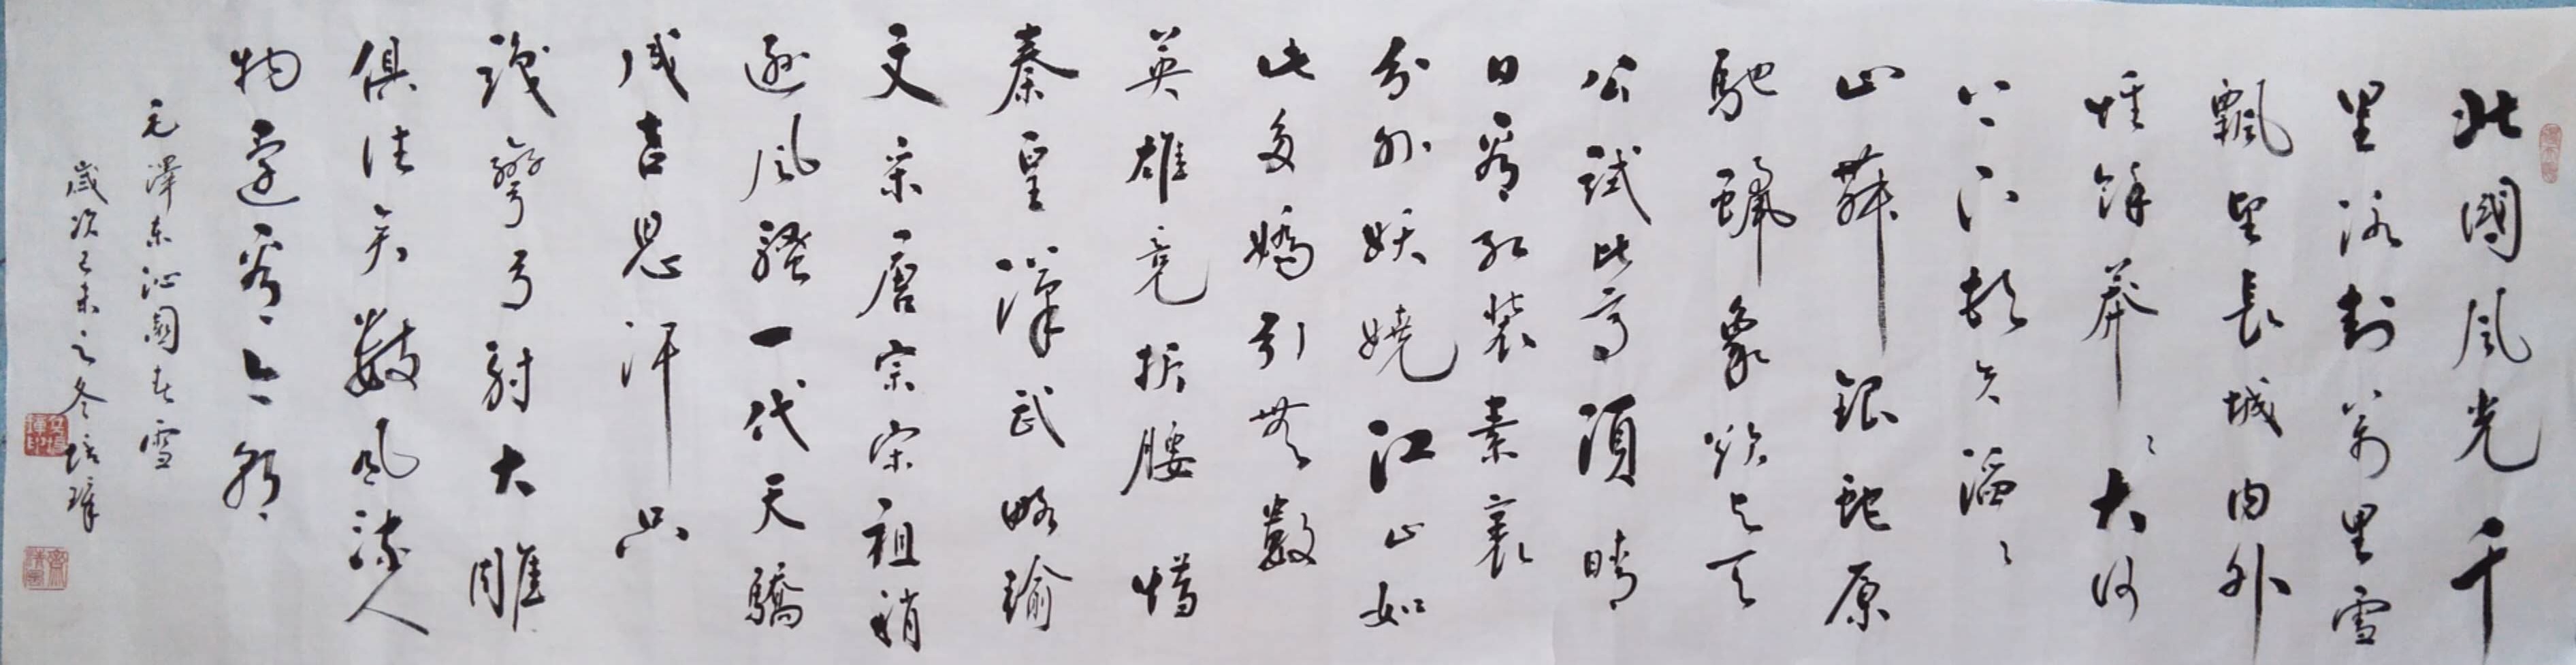 北國風光千
里冰封萬里雪
飄望長城内外
惟餘莽〻大河
上下頓失滔〻
山舞銀蛇原
馳蠟象欲与天
公試比高須晴
日看紅裝素裹
分外妖嬈江山如
此多嬌引無數
英雄竟折腰惜
秦皇漢武略輸
文采唐宗宋祖稍
遜風騷一代天驕
成吉思汗只
識彎弓射大雕
俱往矣數風流人
物還看今朝
毛澤東沁園春雪
歲次乙未之冬培